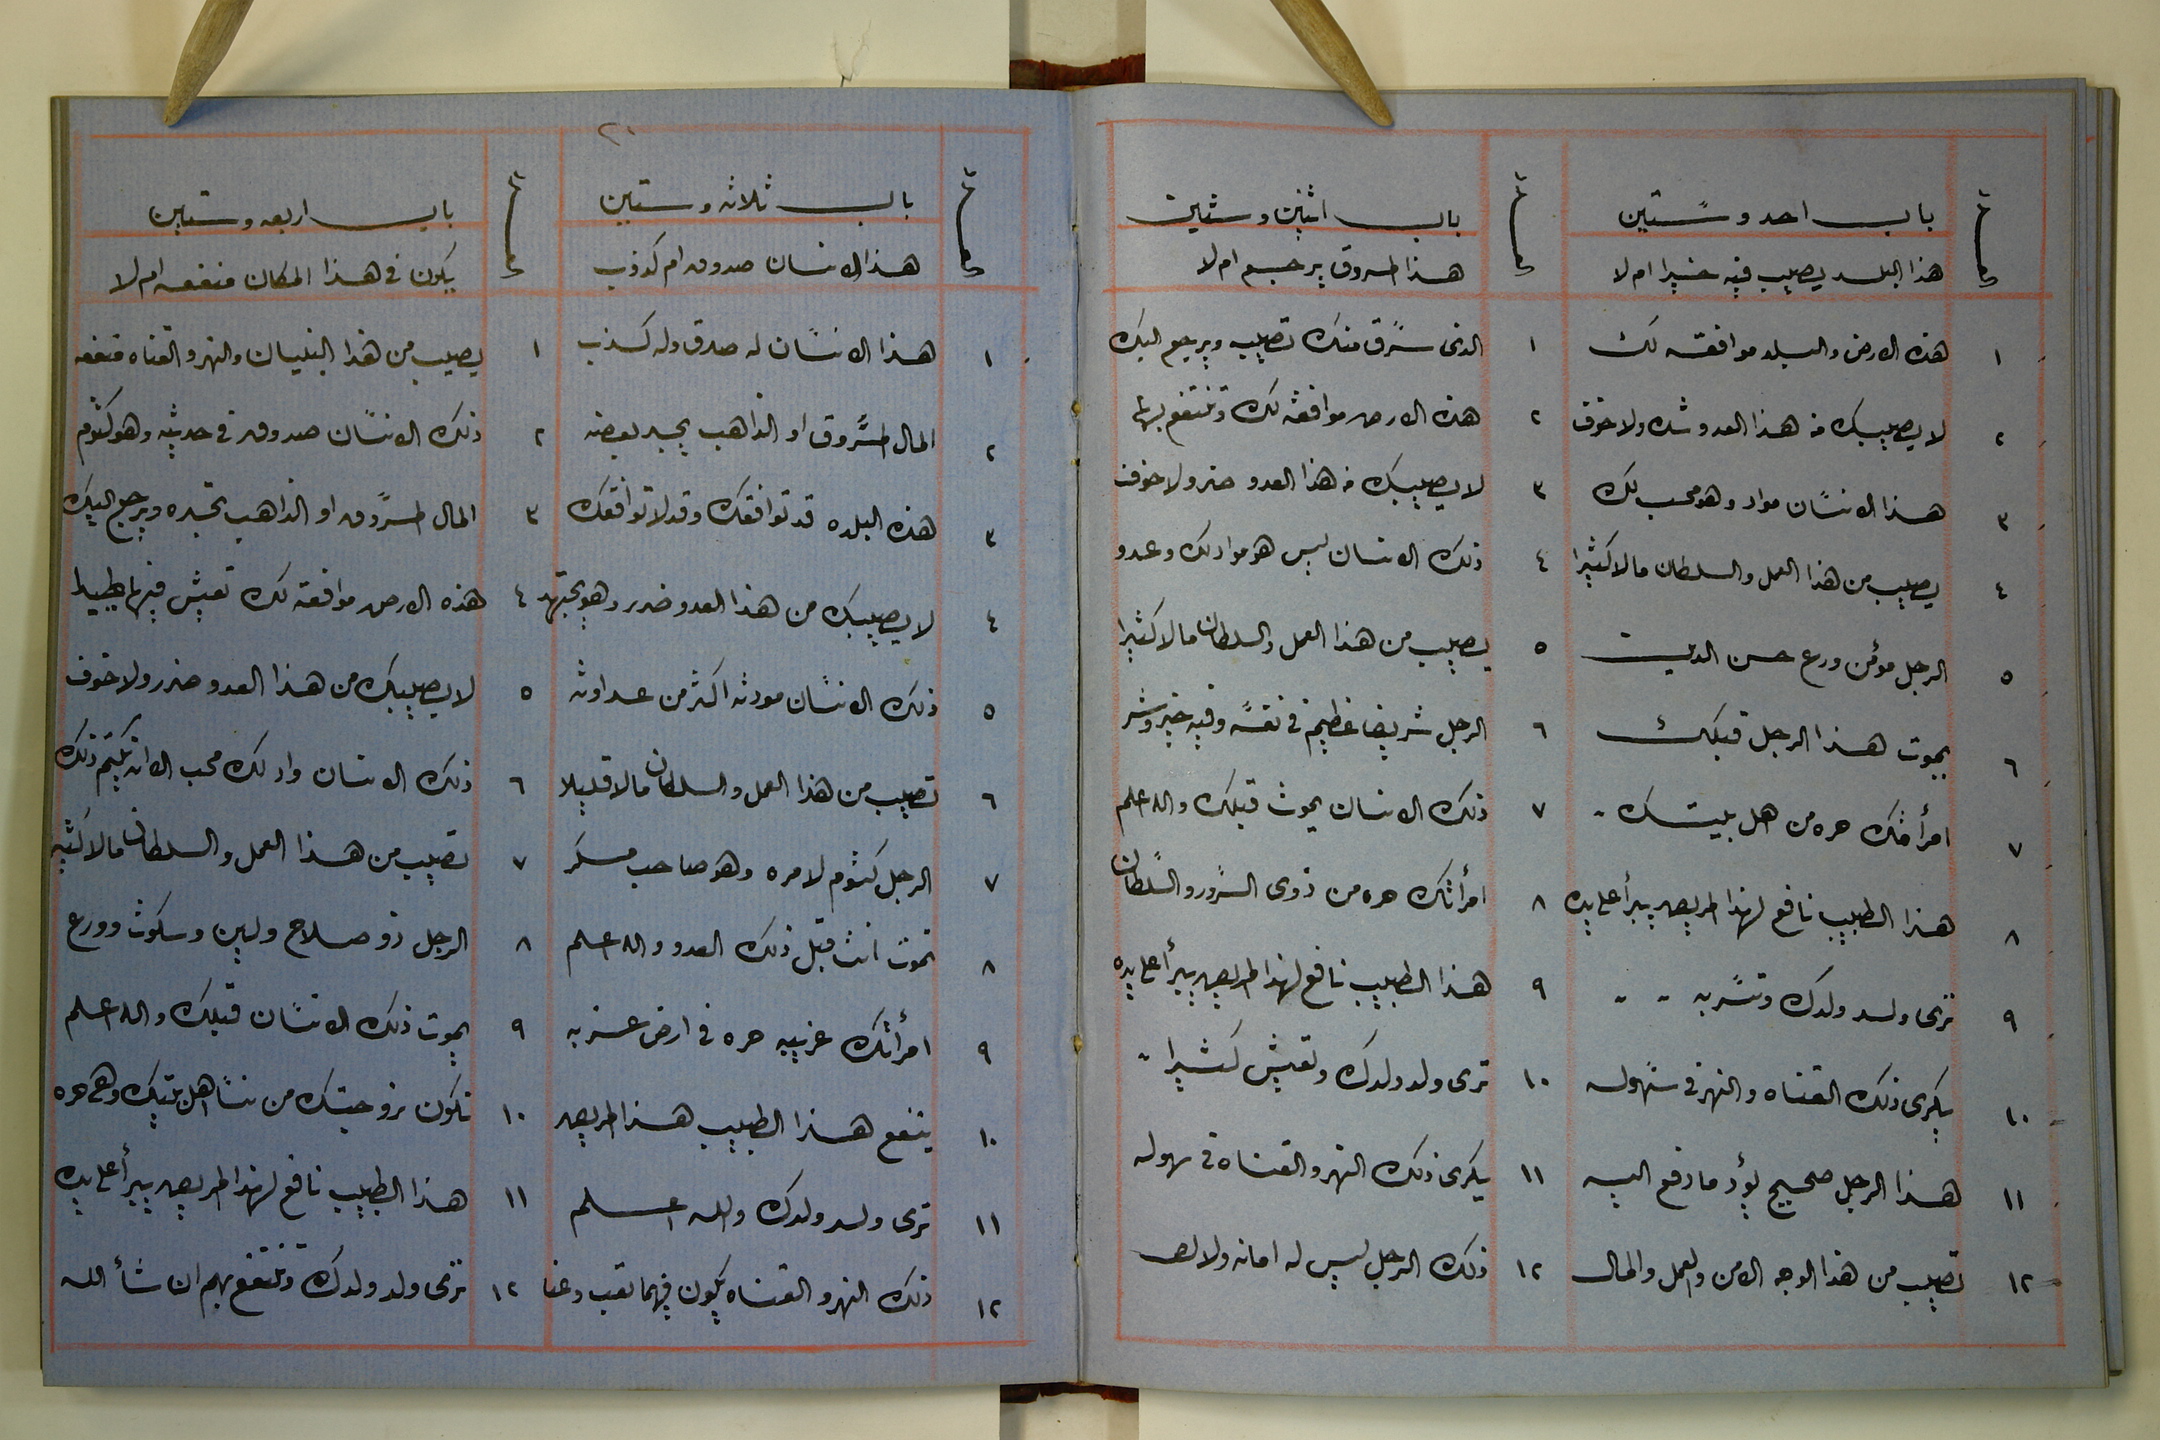 باب احد وستين
هذا البلد يصيب فيه خيرا ام لا
١ هذه الارض والبلد موافقه لك
٢ لا يصيبك من هذا العدو شده ولا خوف
٣ هذا الانسان مواد وهو محب لك
٤ يصيب من هذا العمل والسلطان مالا كثيرا
٥ الرجل مؤمن ورع حسن الدين
٦ يموت هذا الرجل قبلك
٧ امرأتك حره من اهل بيتك
٨ هذا الطبيب نافع لهذا المريض يبرأ على يده
٩ ترى ولد ولدك وتسر به
١٠ يكرى ذلك القناه والنهر في سهوله
١١ هذا الرجل صحيح يؤد ما دفع اليه
١٢ تصيب من هذا الوجه الامن والعمل والمال
باب اثنين وستين
هذا المسروق يرجع ام لا
١ الذى سرق منك تصيب ويرجع اليك
٢ هذه الارض موافقه لك وتنتفع بها
٣ لا يصيبك من هذا العدو ضر ولا خوف
٤ ذلك الانسان ليس هو مواد لك وعدو
٥ يصيب من هذا العمل والسلطان مالا كثيرا
٦ الرجل شريف عظيم في نفسه وفيه خير وشر
٧ ذلك الانسان يموت قبلك والله اعلم
٨ امرأتك حره من ذوى السرور والسلطان
٩ هذا الطبيب نافع لهذا المريض يبرأ على يده
١٠ ترى ولد ولدك وتعيش كثيرا
١١ يكرى ذلك النهر والقناه في سهوله
١٢ ذلك الرجل ليس له امانه ولا
٢٠
باب ثلاثه وستين
هذا الانسان صدوق ام كذوب
١ هذا الانسان له صدق وله كذب
٢ المال المسروق او الذاهب يجد بعضه
٣ هذه البلده قد توافقك وقد لا توافقك
٤ لا يصيبك من هذا العدو ضرر وهو يجتهد
٥ ذلك الانسان مودته اكثر من عداوته
٦ تصيب من هذا العمل والسلطان مالا قليلا
٧ الرجل كتوم لامره وهو صاحب
٨ تموت انت قبل ذلك العدو والله اعلم
٩ امرأتك غريبه حره في ارض غربه
١٠ ينفع هذا الطبيب هذا المريض
١١ ترى ولد ولدك والله اعلم
١٢ ذلك النهر والقناه يكون فيهما تعب وعنا
باب اربعه وستين
يكون في هذا المكان منفعه ام لا
١ يصيب من هذا البنيان والنهر والقناه منفعه
٢ ذلك الانسان صدوق في حديثه وهو كتوم
٣ المال المسروق او الذاهب تجده ويرجع اليك
٤ هذه الارض موافقه لك تعيش فيها طيبا
٥ لا يصيبك من هذا العدو ضرر ولا خوف
٦ ذلك الانسان واد لك محب الا انه يكتم ذلك
٧ تصيب من هذا العمل والسلطان مالا كثير
٨ الرجل ذو صلاح ولين وسكوت وورع
٩ يموت ذلك الانسان قبلك والله اعلم
١٠ تكون زوجتك من نسا اهل بيتك وهي حره
١١ هذا الطبيب نافع لهذا المريض يبرأ على يده
١٢ ترى ولد ولدك وتنتفع بهم ان شأ الله